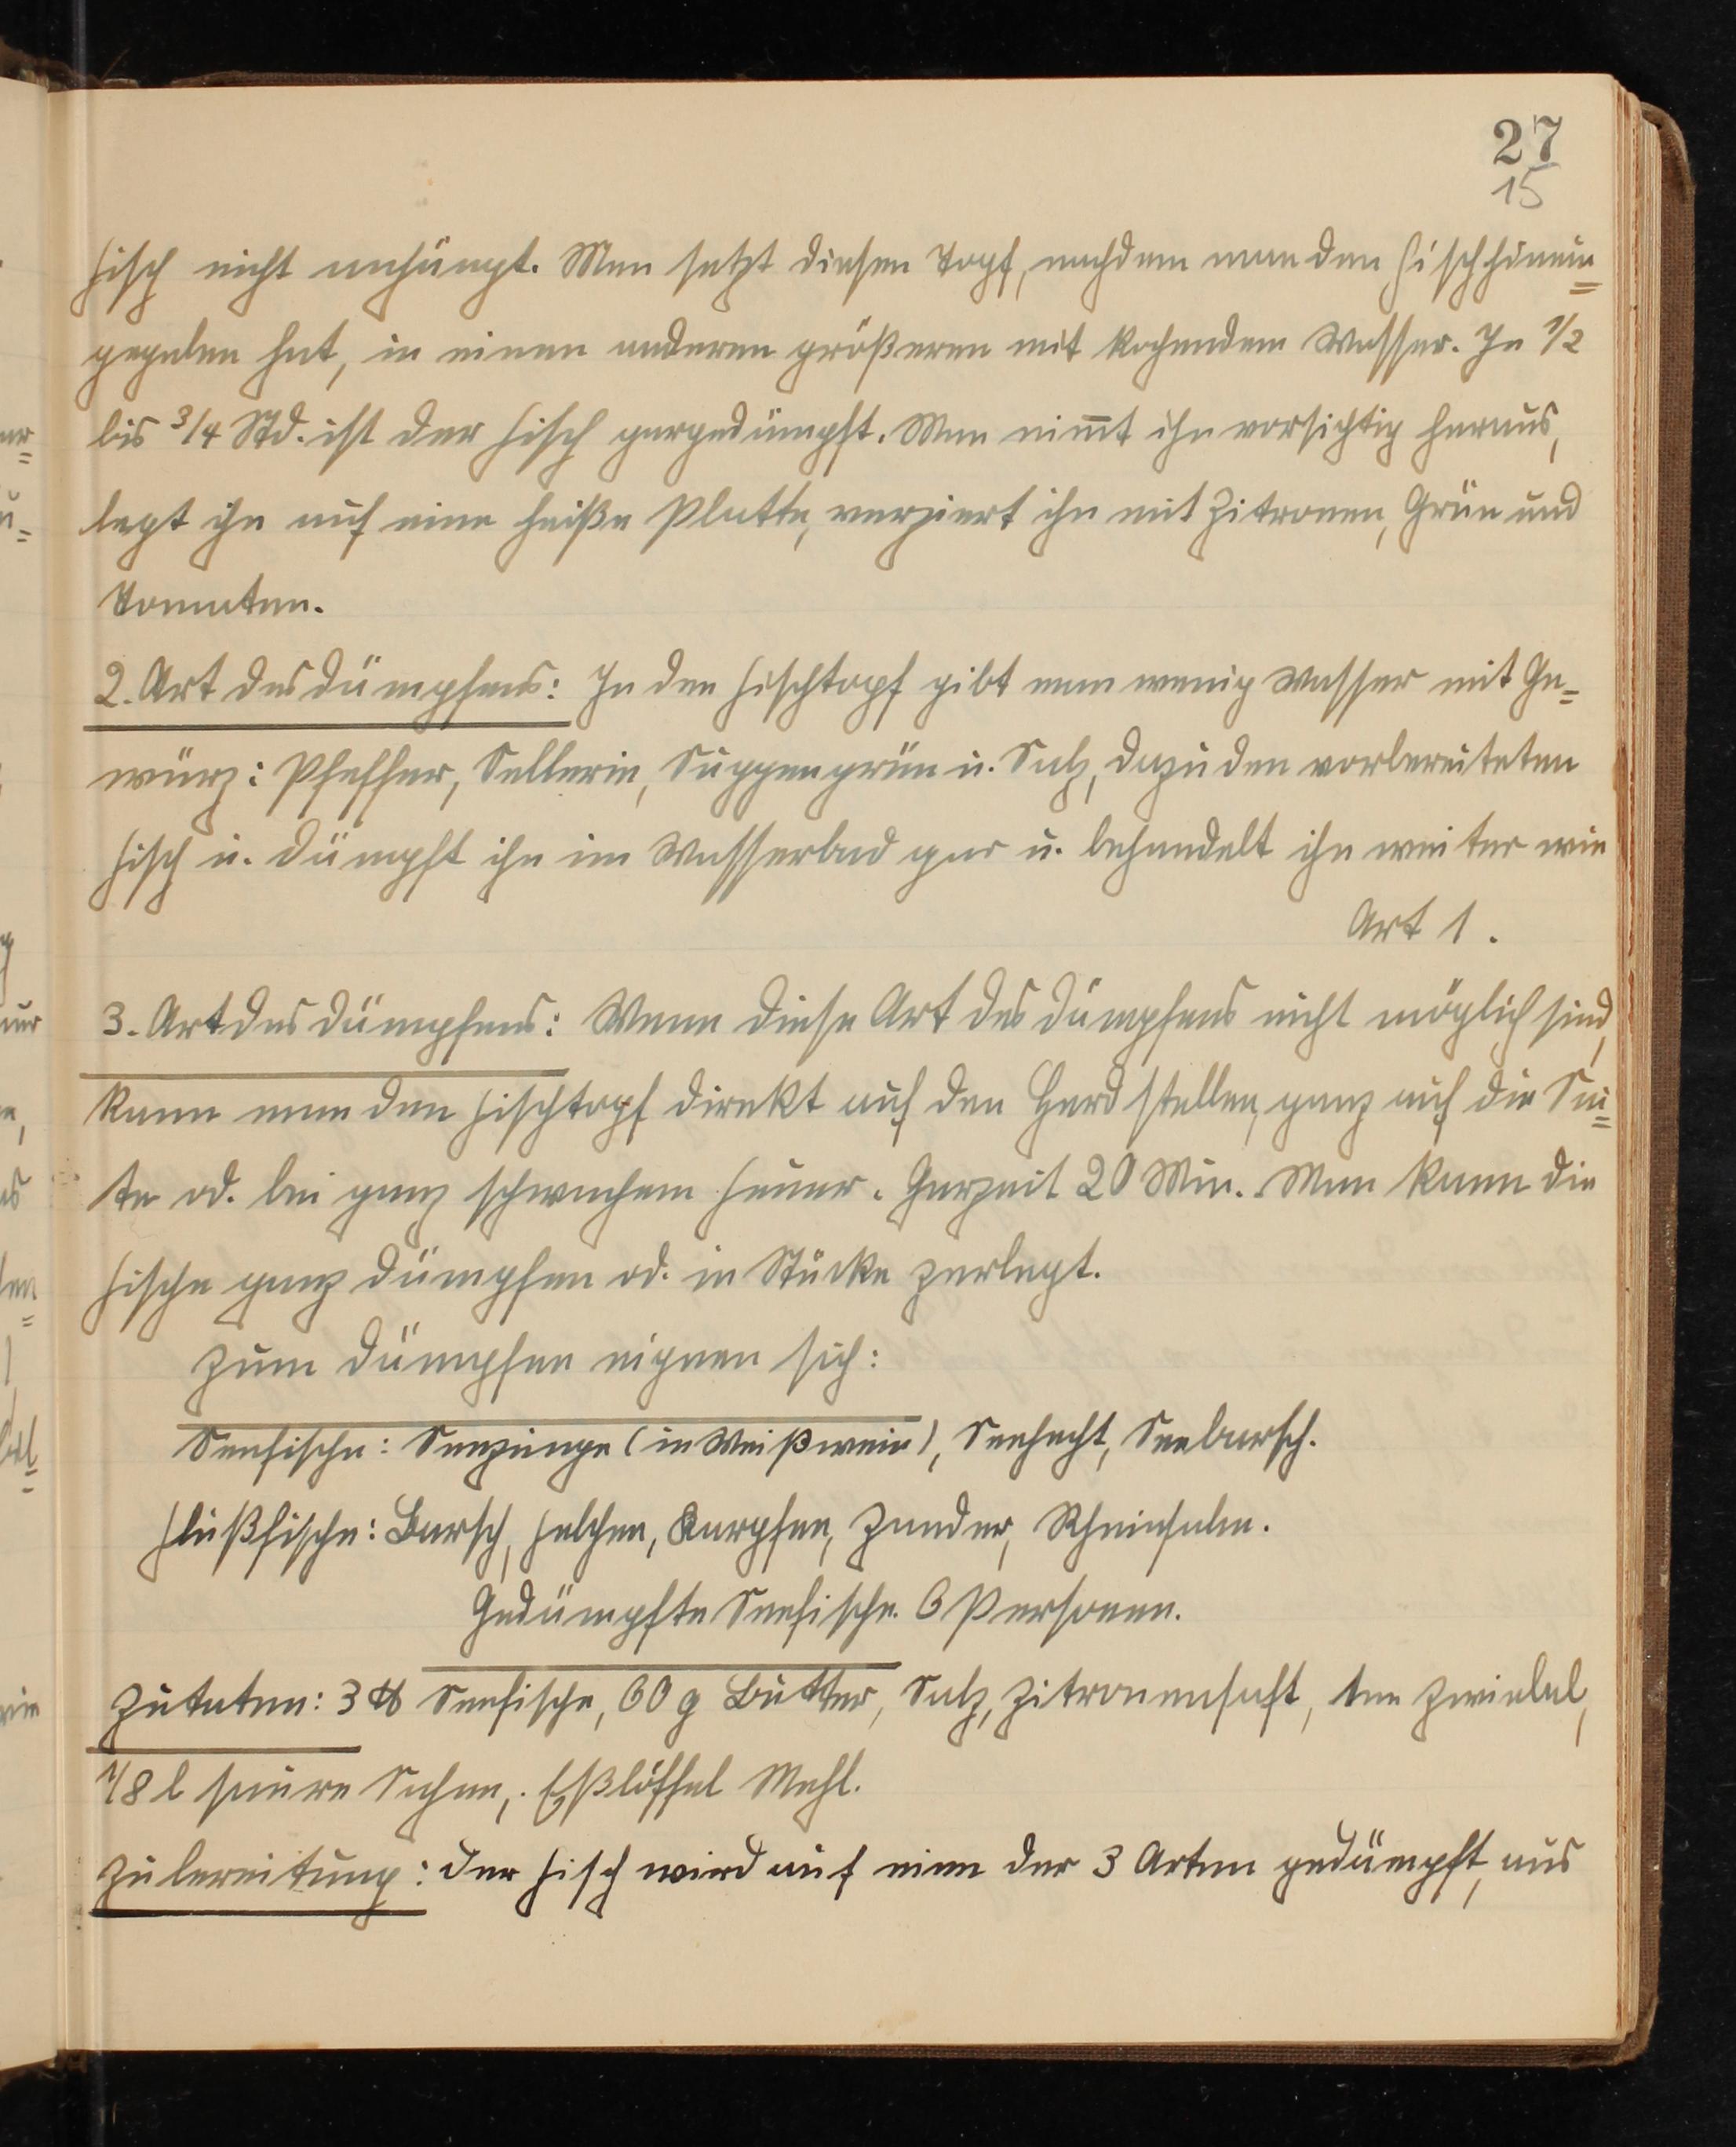 27
15
Fisch nicht anhängt. Man setzt diesen Topf, nachdem man den Fisch hinein=
gegeben hat, in einen anderen größeren mit kochendem Wasser. In 1/2
bis 3/4 Std. ist der Fisch gargedämpft. Man nim̄t ihn vorsichtig heraus,
legt ihn auf eine heiße Platte, verziert ihn mit Zitronen, Grün und
Tomaten.
2. Art des Dämpfens: In den Fischtopf gibt man wenig Wasser mit Ge=
würz: Pfeffer, Sellerie, Suppengrün u. Salz, dazu den vorbereiteten
Fisch u. dämpft ihn im Wasserbad gar u. behandelt ihn weiter wie
Art 1.
3. Art des Dämpfens: Wenn diese Art des Dämpfens nicht möglich sind,
kann man den Fischtopf direkt auf den Herd stellen, ganz auf die Sei=
te od. bei ganz schwachem Feuer. Garzeit 20 Min. Man kann die
Fische ganz dämpfen od. in Stücke zerlegt.
Zum Dämpfen eignen sich:
Seefische: Seezunge (in Weißwein), Seehecht, Seebarsch.
Flußfische: Barsch, Felchen, Karpfen, Zander, Rheinsalm.
Gedämpfte Seefische. 6 Personen.
Zutaten: 3 ℔ Seefische, 60 g Butter, Salz, Zitronensaft, 1ne Zwiebel,
1/8 l saure Sahne, Eßlöffel Mehl.
Zubereitung: Der Fisch wird auf eine der 3 Arten gedämpft, aus